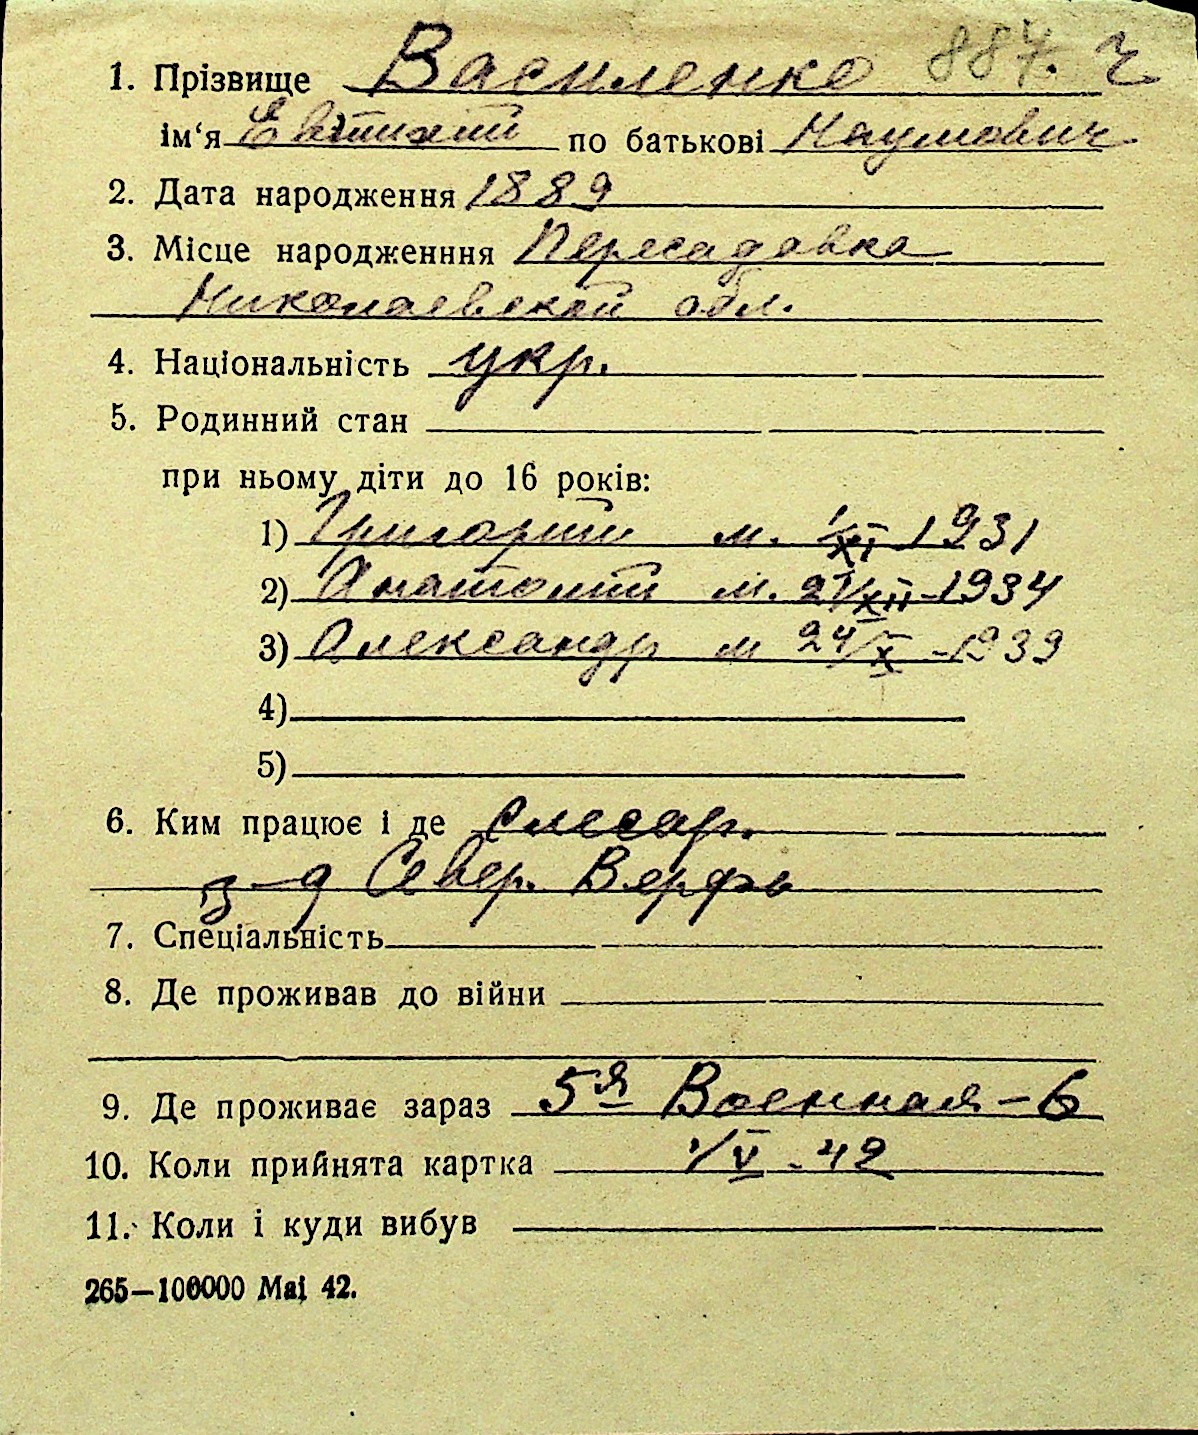 1. Прізвище Василенко 884. г
ім‘я Евтихий по батькові Наумович
2. Дата народження 1889
3. Місце народженння Пересадовка
Николаевской обл.
4. Національність укр.
5. Родинний стан
при ньому діти до 16 років:
1) Григорий м. 1/XI 1931
2) Анатолий м. 27/XII-1934
3) Александр м 24/X-1939
4)
5)
6. Ким працює і де слесар.
з-д Север. Верфь
7. Спеціальність
8. Де проживав до війни
9. Де проживає зараз 5я Военная-6
10. Коли прийнята картка 1/V-42
11. Коли і куди вибув
265—100000 Маі 42.